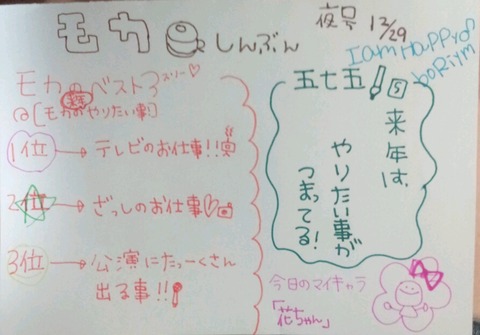 モカしんぶん
夜号 12/29
I am HAPPYd
boRiym
モカのベスト3
スリー♡
@[モカの来年やりたい事]
1位→テレビのお仕事!!
2位→ざっしのお仕事♡
3位→公演にたっーくさん
出る事!!
五七五
5
来年は、
やりたい事が
つまってる!
今日のマイキャラ
「花ちゃん」